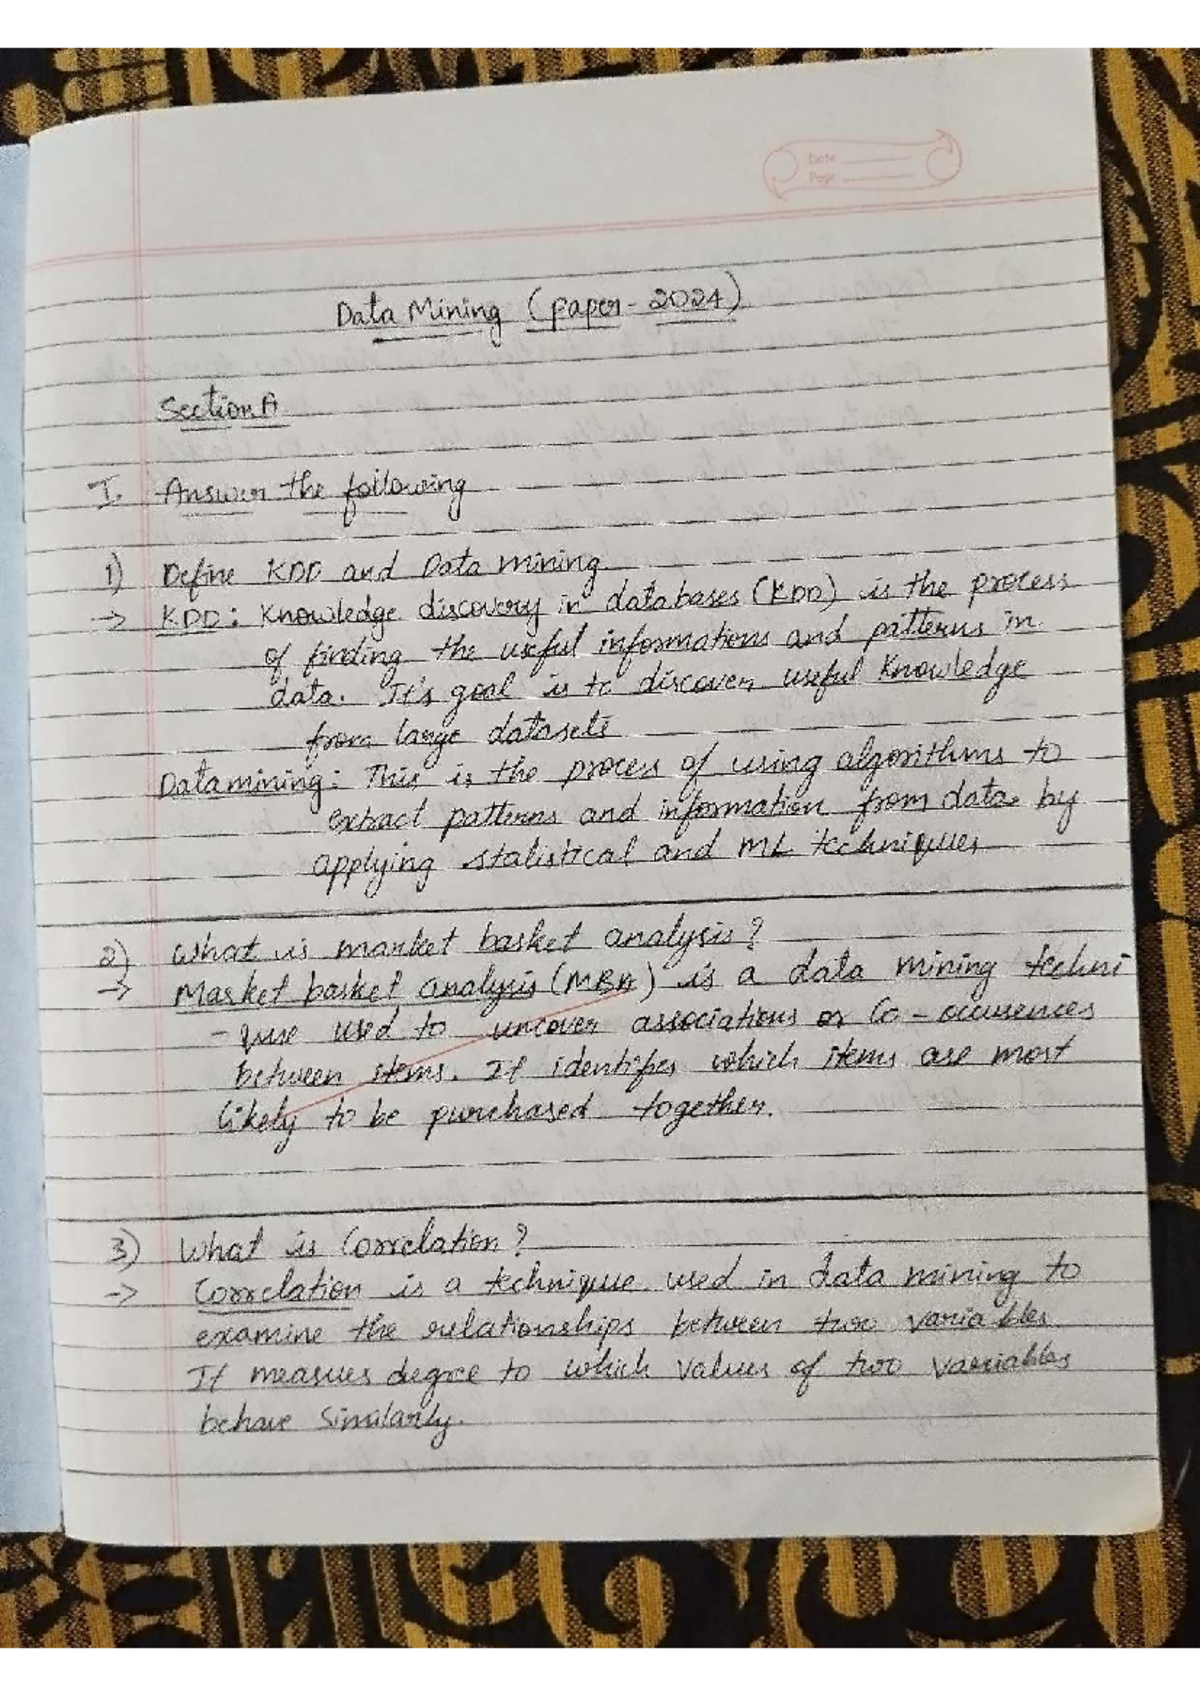 Date
Page
Data Mining (paper - 2024)
Section A
I. Answer the following
1) Define KDD and Data mining.
→ KDD: Knowledge discovery in databases (KDD) is the process
of finding the useful informations and patterns in
data. It's goal is to discover useful knowledge
from large datasets
Datamining: This is the process of using algorithms to
extract patterns and information from data by
applying statistical and ML techniques
2) What is market basket analysis?
→ Market basket analysis (MBA) is a data mining techni
-que used to uncover associations or Co-occurences
between items. It identifies which items are most
likely to be purchased together.
3) What is Correlation?
→ Correlation is a technique used in data mining to
examine the relationships between two variables
It measures degree to which values of two variables
behave similarly.